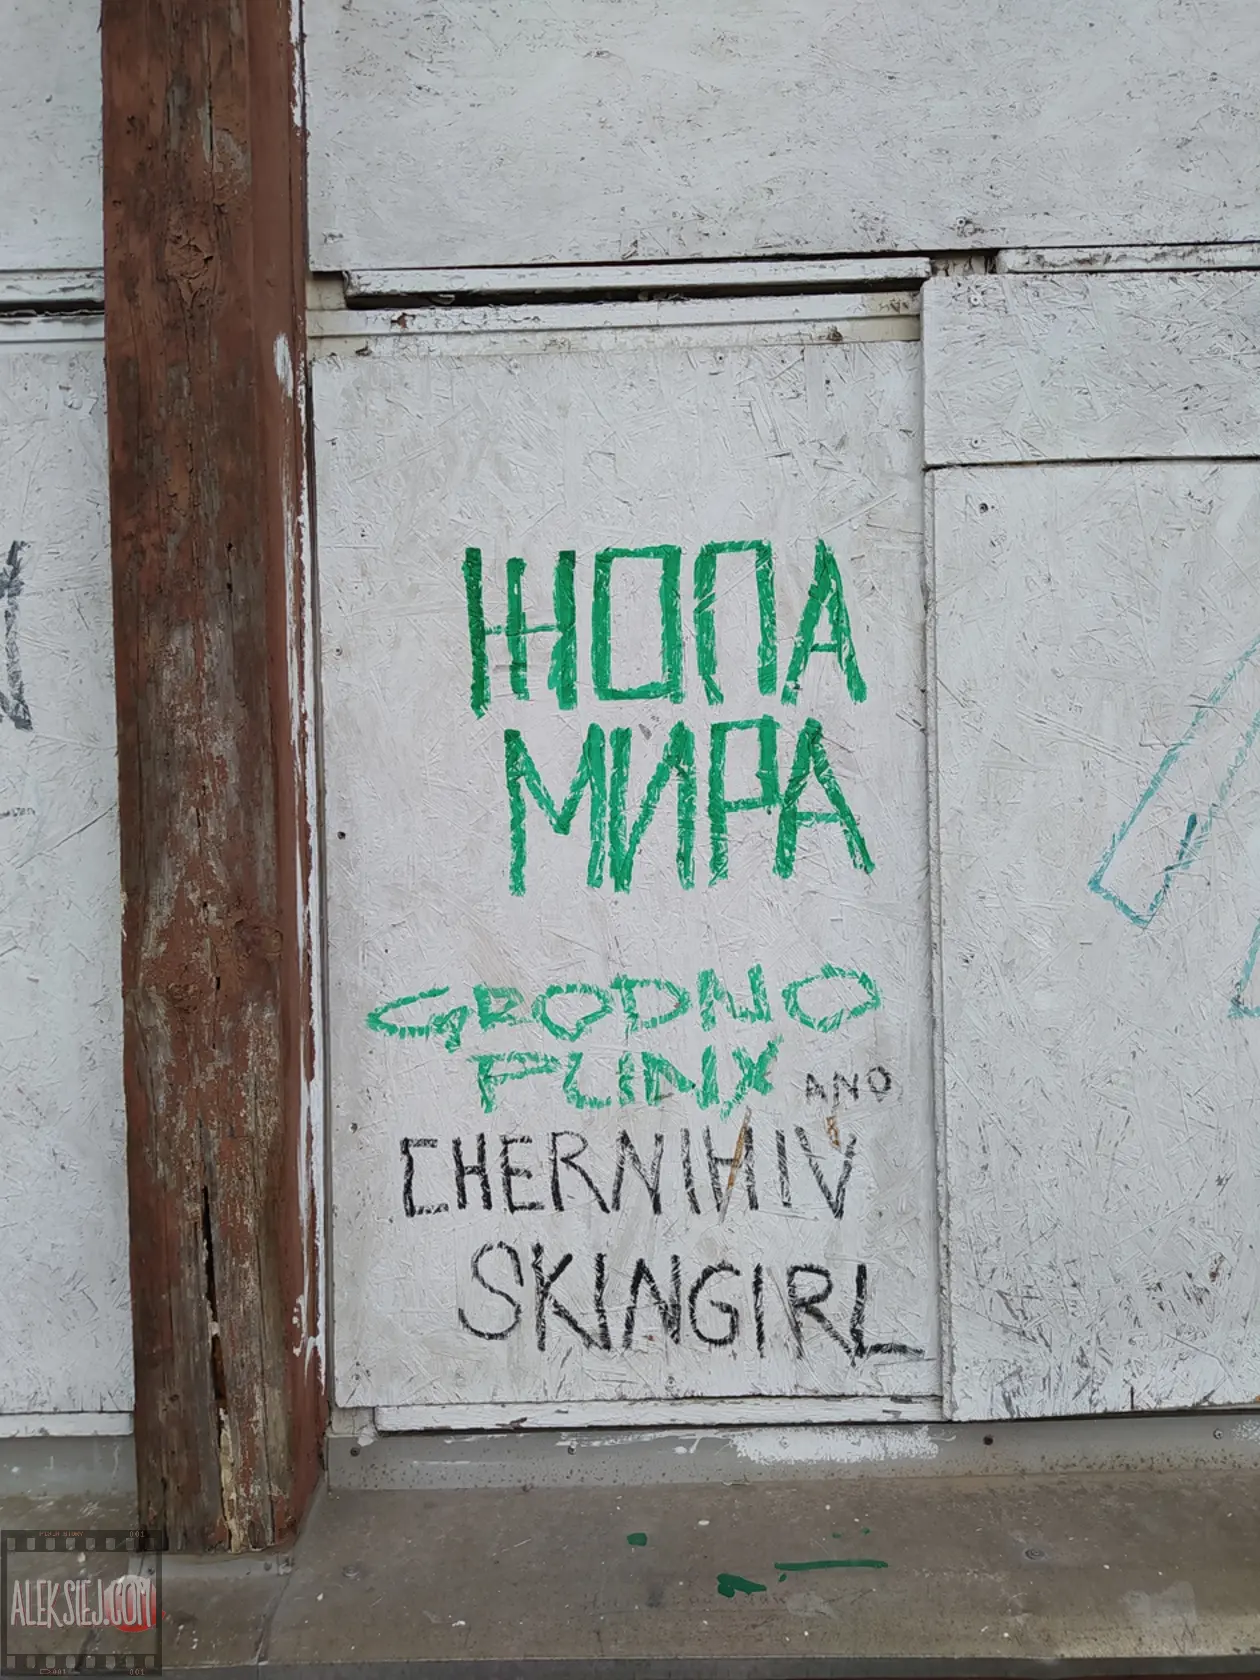 ЖОПА
МИРА
GRODNO
PUNX AND
CHERNIHIV
SKINGIRL
ALEKSIEJ.COM